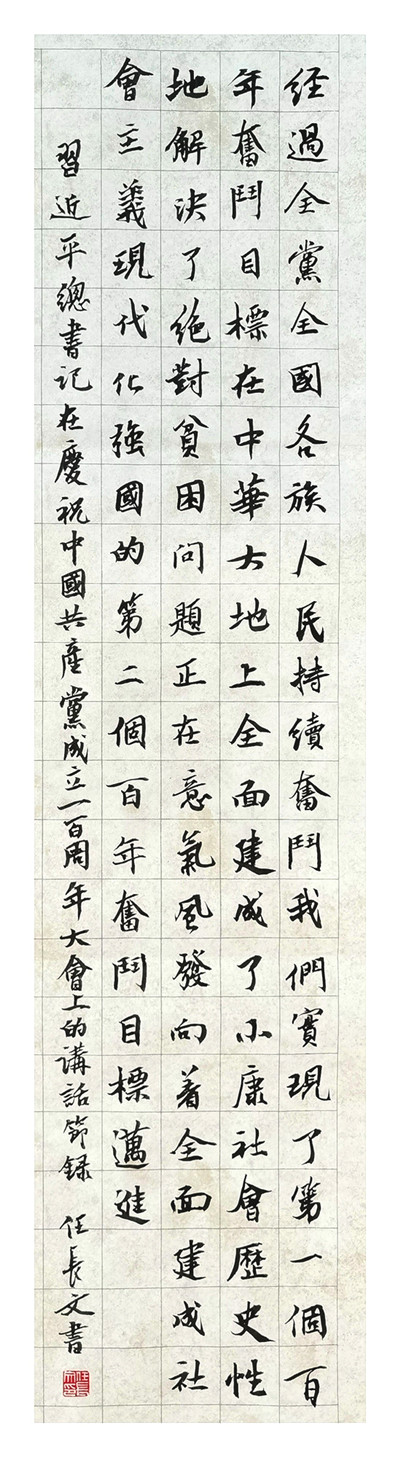 經過全黨全國各族人民持續奮鬥我們實現了第一個百
年奮鬥目標在中華大地上全面建成了小康社會歷史性
地解決了絕對貧困問題正在意氣風發向着全面建成社
會主義現代化強國的第二個百年奮鬥目標邁進
習近平總書記在慶祝中國共產黨成立一百周年大會上的講話節録 任長文書